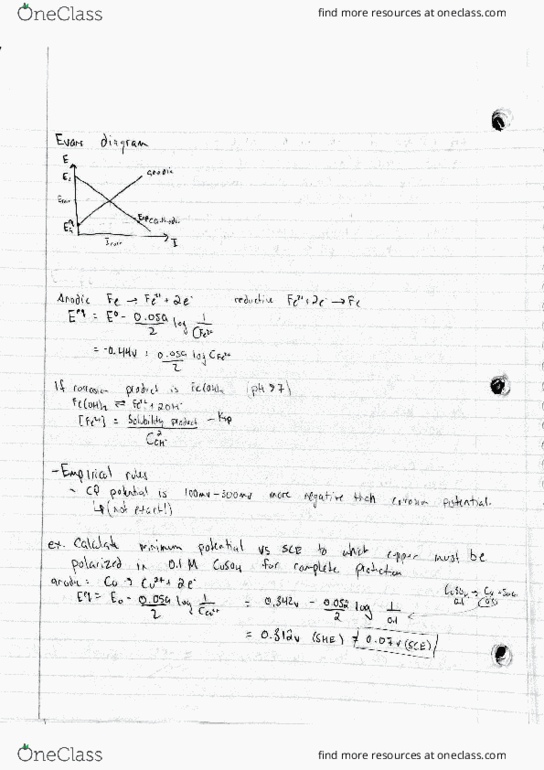 OneClass
find more resources at oneclass.com
Evans diagram
E
anodic
E
Ecorr
Ecp cathodic
Icorr
I
Anodic Fe → Fe²⁺ + 2e⁻ reductive Fe²⁺ + 2e⁻ → Fe
E^eq = E⁰ - 0.059/2 log 1/C Fe²⁺
= -0.44V + 0.059/2 log C Fe²⁺
If corrosion product is Fe(OH)₂ (pH > 7)
Fe(OH)₂ ⇌ Fe²⁺ + 2OH⁻
[Fe²⁺] = Solubility product - Ksp / C²OH⁻
- Empirical rules
- CP potential is 100mv-300mv more negative than corrosion potential.
↳ (not exact!)
ex. Calculate minimum potential vs SCE to which copper must be
polarized in 0.1 M CuSO4 for complete protection
anode: Cu → Cu²⁺ + 2e⁻
E^eq = E₀ - 0.059/2 log 1/C Cu²⁺ = 0.342v - 0.059/2 log 1/0.1
CuSO4 → Cu + SO4
0.1 0.1
= 0.312v (SHE) 0.07v (SCE)
OneClass
find more resources at oneclass.com